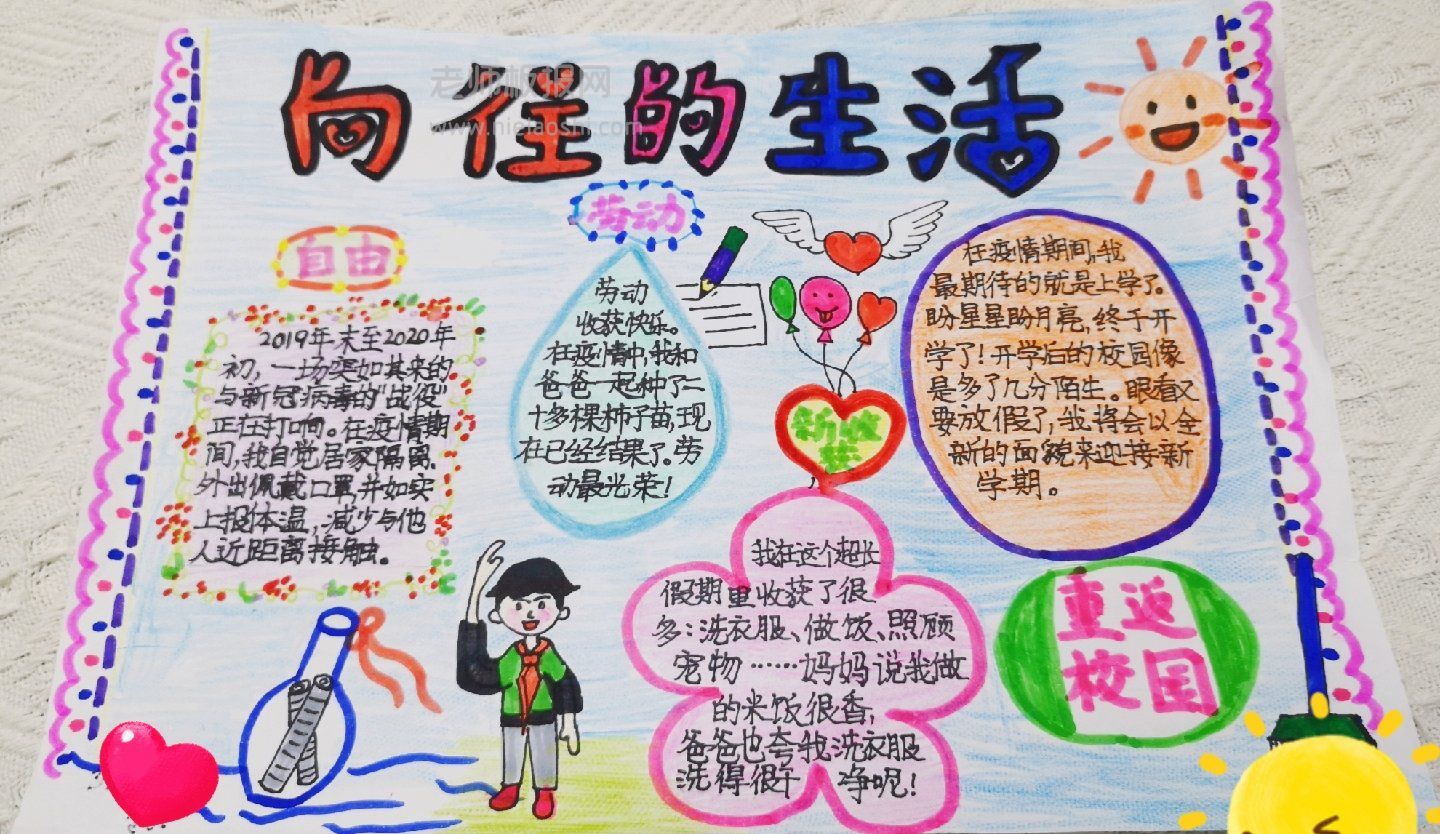 向往的生活
老师板报网
自由
2019年末至2020年
初,一场突如其来的
与新冠病毒的"战役"
正在打响。在疫情期
间,我自觉居家隔离.
外出佩戴口罩,并如实
上报体温,减少与他
人近距离接触。
劳动
劳动
收获快乐。
在疫情中,我和
爸爸一起种了二
十多棵柿子苗,现
在已经结果了。劳
动最光荣!
新收
获
我在这个超长
假期里收获了很
多:洗衣服、做饭、照顾
宠物……妈妈说我做
的米饭很香,
爸爸也夸我洗衣服
洗得很干净呢!
在疫情期间,我
最期待的就是上学了。
盼星星盼月亮,终于开
学了!开学后的校园像
是多了几分陌生。眼看又
要放假了,我将会以全
新的面貌来迎接新
学期。
重返
校园